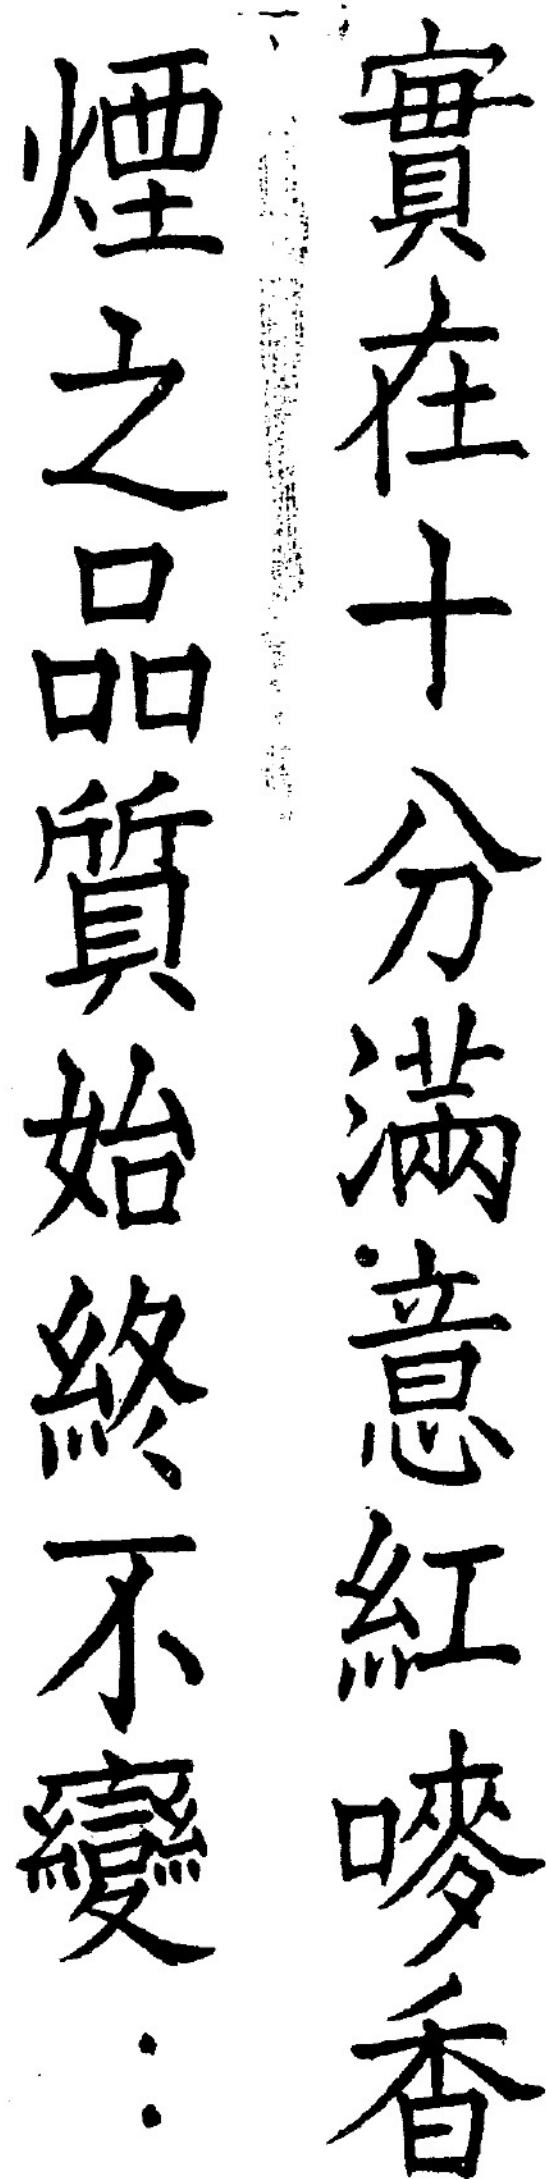 實在十分滿意紅嘜香
煙之品質始終不變：